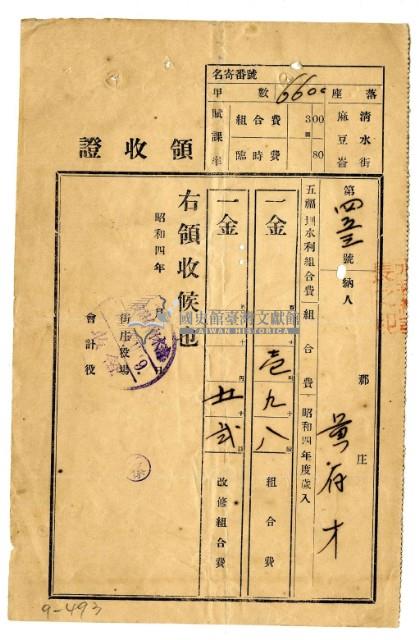 領收證
名寄番號
甲數 6600
賦課率
組合費 300
臨時費 80
座落
清水街
麻豆崙
第四五三號
納人
郡
庄
黃存才
五福圳水利組合費 組合費 昭和四年度歲入
一金 壱九八 組合費
一金 五貳 改修組合費
右領收候也
昭和四年 月 日
街庄役場
會計役
國史館臺灣文獻館
TAIWAN HISTORICA
9-493